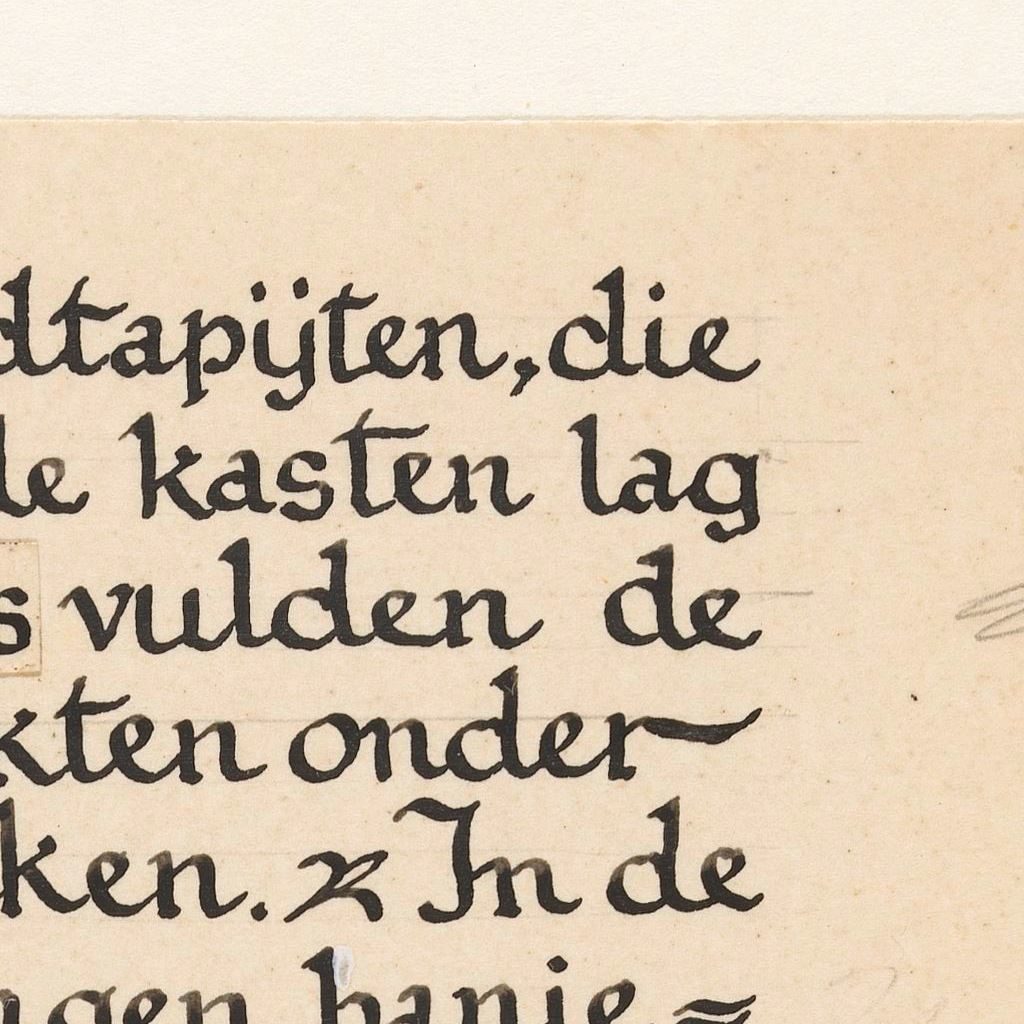 dtapijten, die
de kasten lag
s vulden de
kten onder
ken. In de
ngen hanie=